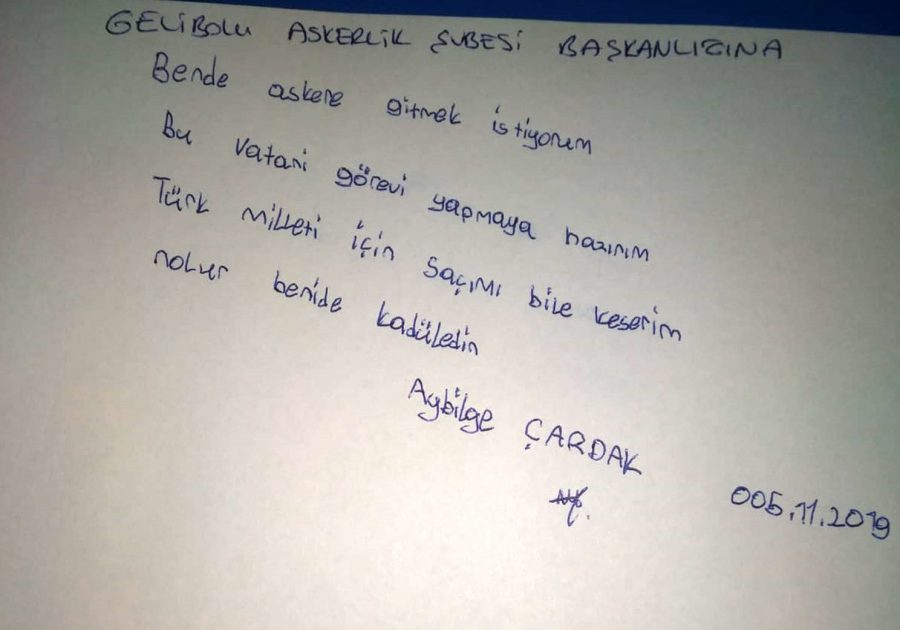 GELİBOLU ASKERLİK ŞUBESİ BAŞKANLIZINA
Bende askere gitmek istiyorum
Bu vatani görevi yapmaya hazırım
Türk milleti için saçımı bile keserim
nolur benide kadüledin
Aybilge ÇARDAK
005.11.2019